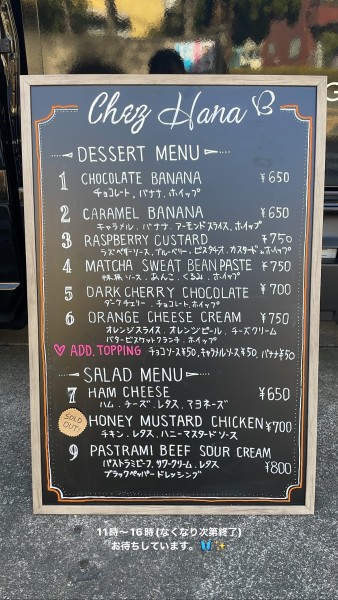 Chez Hana
DESSERT MENU
1 CHOCOLATE BANANA ¥650
チョコレート、バナナ、ホイップ
2 CARAMEL BANANA ¥650
キャラメル、バナナ、アーモンドスライス、ホイップ
3 RASPBERRY CUSTARD ¥750
ラズベリーソース、ブルーベリー、ピスタチオ、カスタード、ホイップ
4 MATCHA SWEAT BEAN PASTE ¥750
抹茶ソース、あんこ、くるみ、ホイップ
5 DARK CHERRY CHOCOLATE ¥700
ダークチェリー、チョコレート、ホイップ
6 ORANGE CHEESE CREAM ¥750
オレンジスライス、オレンジピール、チーズクリーム
バタービスケットクランチ、ホイップ
ADD. TOPPING チョコソース¥50、キャラメルソース¥50、バナナ¥50
SALAD MENU
7 HAM CHEESE ¥650
ハム、チーズ、レタス、マヨネーズ
SOLD OUT! HONEY MUSTARD CHICKEN ¥700
チキン、レタス、ハニーマスタードソース
9 PASTRAMI BEEF SOUR CREAM
パストラミビーフ、サワークリーム、レタス ¥800
ブラックペッパードレッシング
11時〜16時(なくなり次第終了)
お待ちしています。